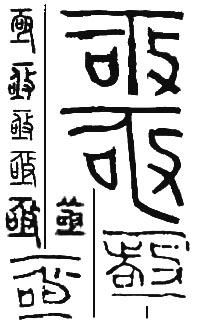 亟
亟
亟
亟
亟
亟
亟
亟